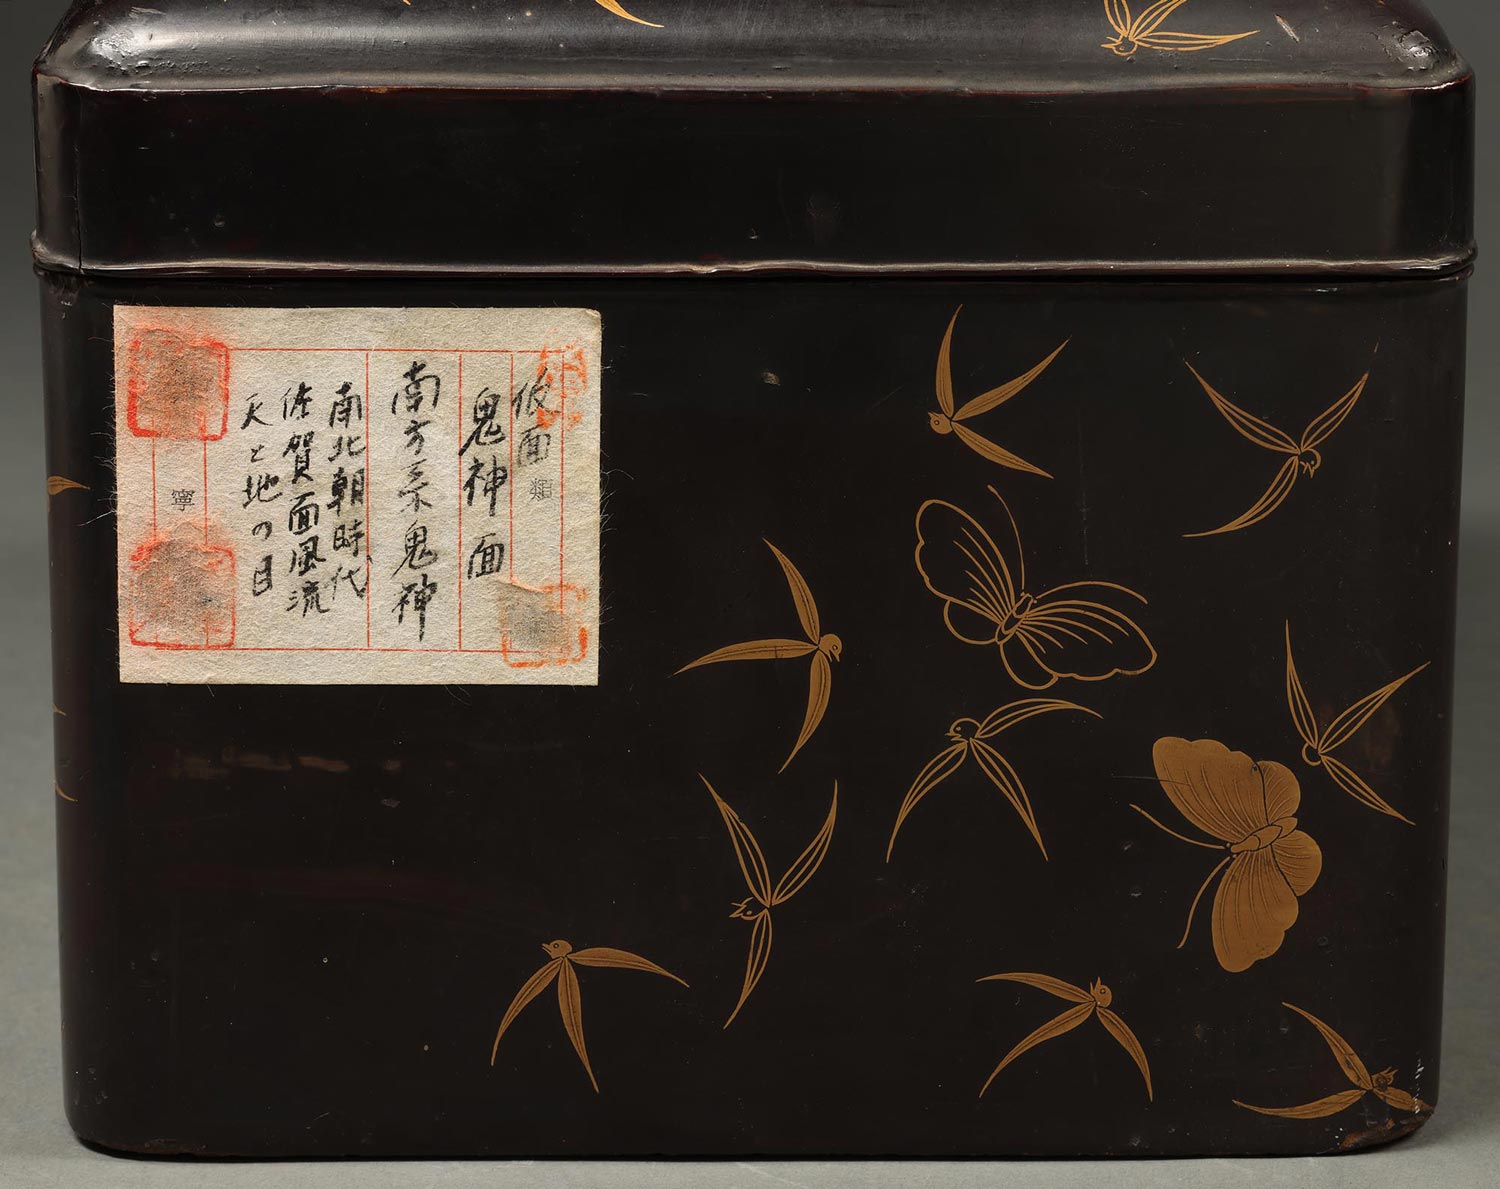 仮面類
鬼神面
南方系鬼神
南北朝時代
佐賀面風流
天と地の目
寧